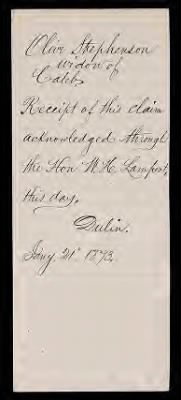 Olive Stephenson
widow of
Caleb
Receipt of this claim
acknowledged through
the Hon W. H. Lamport,
this day.
Dulin.
Jany. 21st 1873.